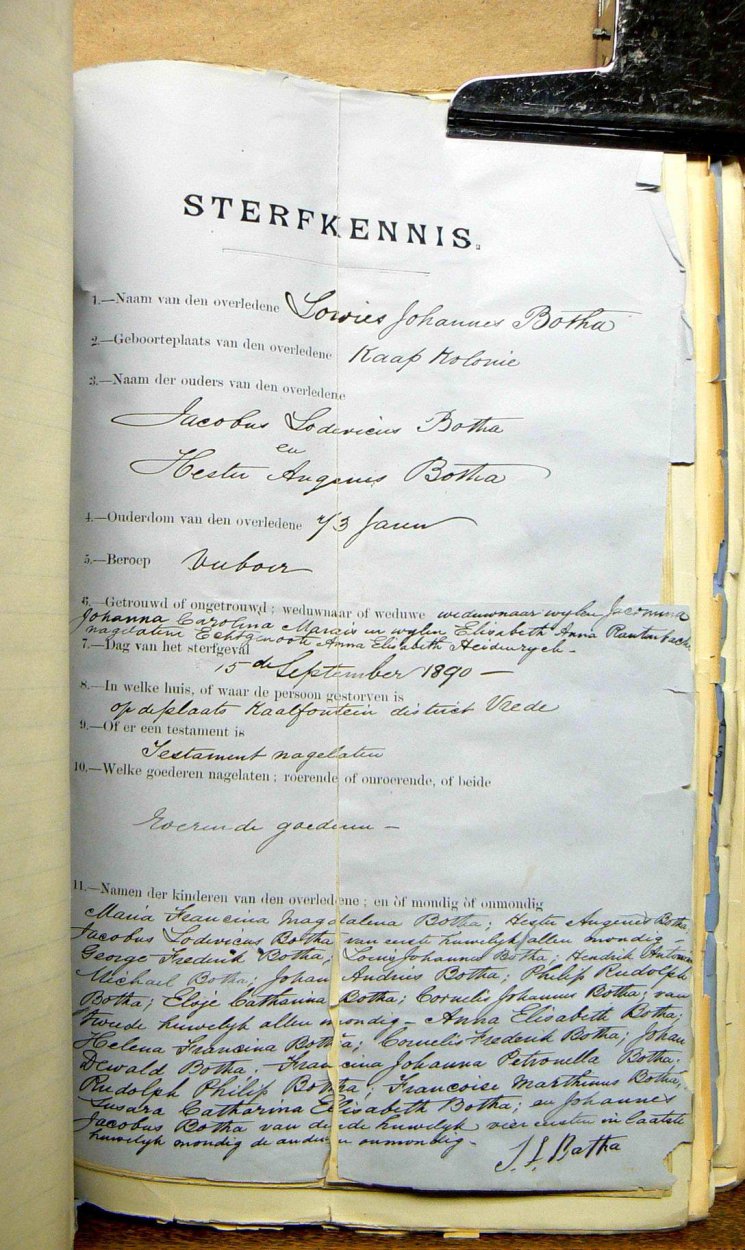 STERFKENNIS.
1.—Naam van den overledene Lowies Johannes Botha
2.—Geboorteplaats van den overledene Kaap Kolonie
3.—Naam der ouders van den overledene
Jacobus Lodevicus Botha
en
Hester Angenis Botha
4.—Ouderdom van den overledene 73 Jaren
5.—Beroep Veeboer
6.—Getrouwd of ongetrouwd; weduwnaar of weduwe weduwnaar wylen Jacomina
Johanna Carolina Marais en wylen Elisabeth Anna Rautenbach
nagelatene Echtgenoote Anna Elisabeth Heidenrych -
7.—Dag van het sterfgeval
15de September 1890 —
8.—In welke huis, of waar de persoon gestorven is
op de plaats Kaalfontein district Vrede
9.—Of er een testament is
Testament nagelaten
10.—Welke goederen nagelaten; roerende of onroerende, of beide
Roerende goederen —
11.—Namen der kinderen van den overledene; en òf mondig òf onmondig
Maria Francina Magdalena Botha; Hester Angenis Botha;
Jacobus Lodevicus Botha van eerste huwelyk allen mondig —
George Frederik Botha; Louis Johannes Botha; Hendrik
Michael Botha; Johan Andries Botha; Philip Rudolph
Botha; Elsje Catharina Botha; Cornelis Johannes Botha; van
tweede huwelyk allen mondig - Anna Elisabeth Botha;
Helena Francina Botha; Cornelis Frederik Botha; Johan
Dewald Botha; Francina Johanna Petronella Botha;
Rudolph Philip Botha; Francoise Marthinus Botha;
Susara Catharina Elisabeth Botha; en Johannes
Jacobus Botha van derde huwelyk vier eersten in laatste
huwelyk mondig de anderen onmondig -
J L Botha